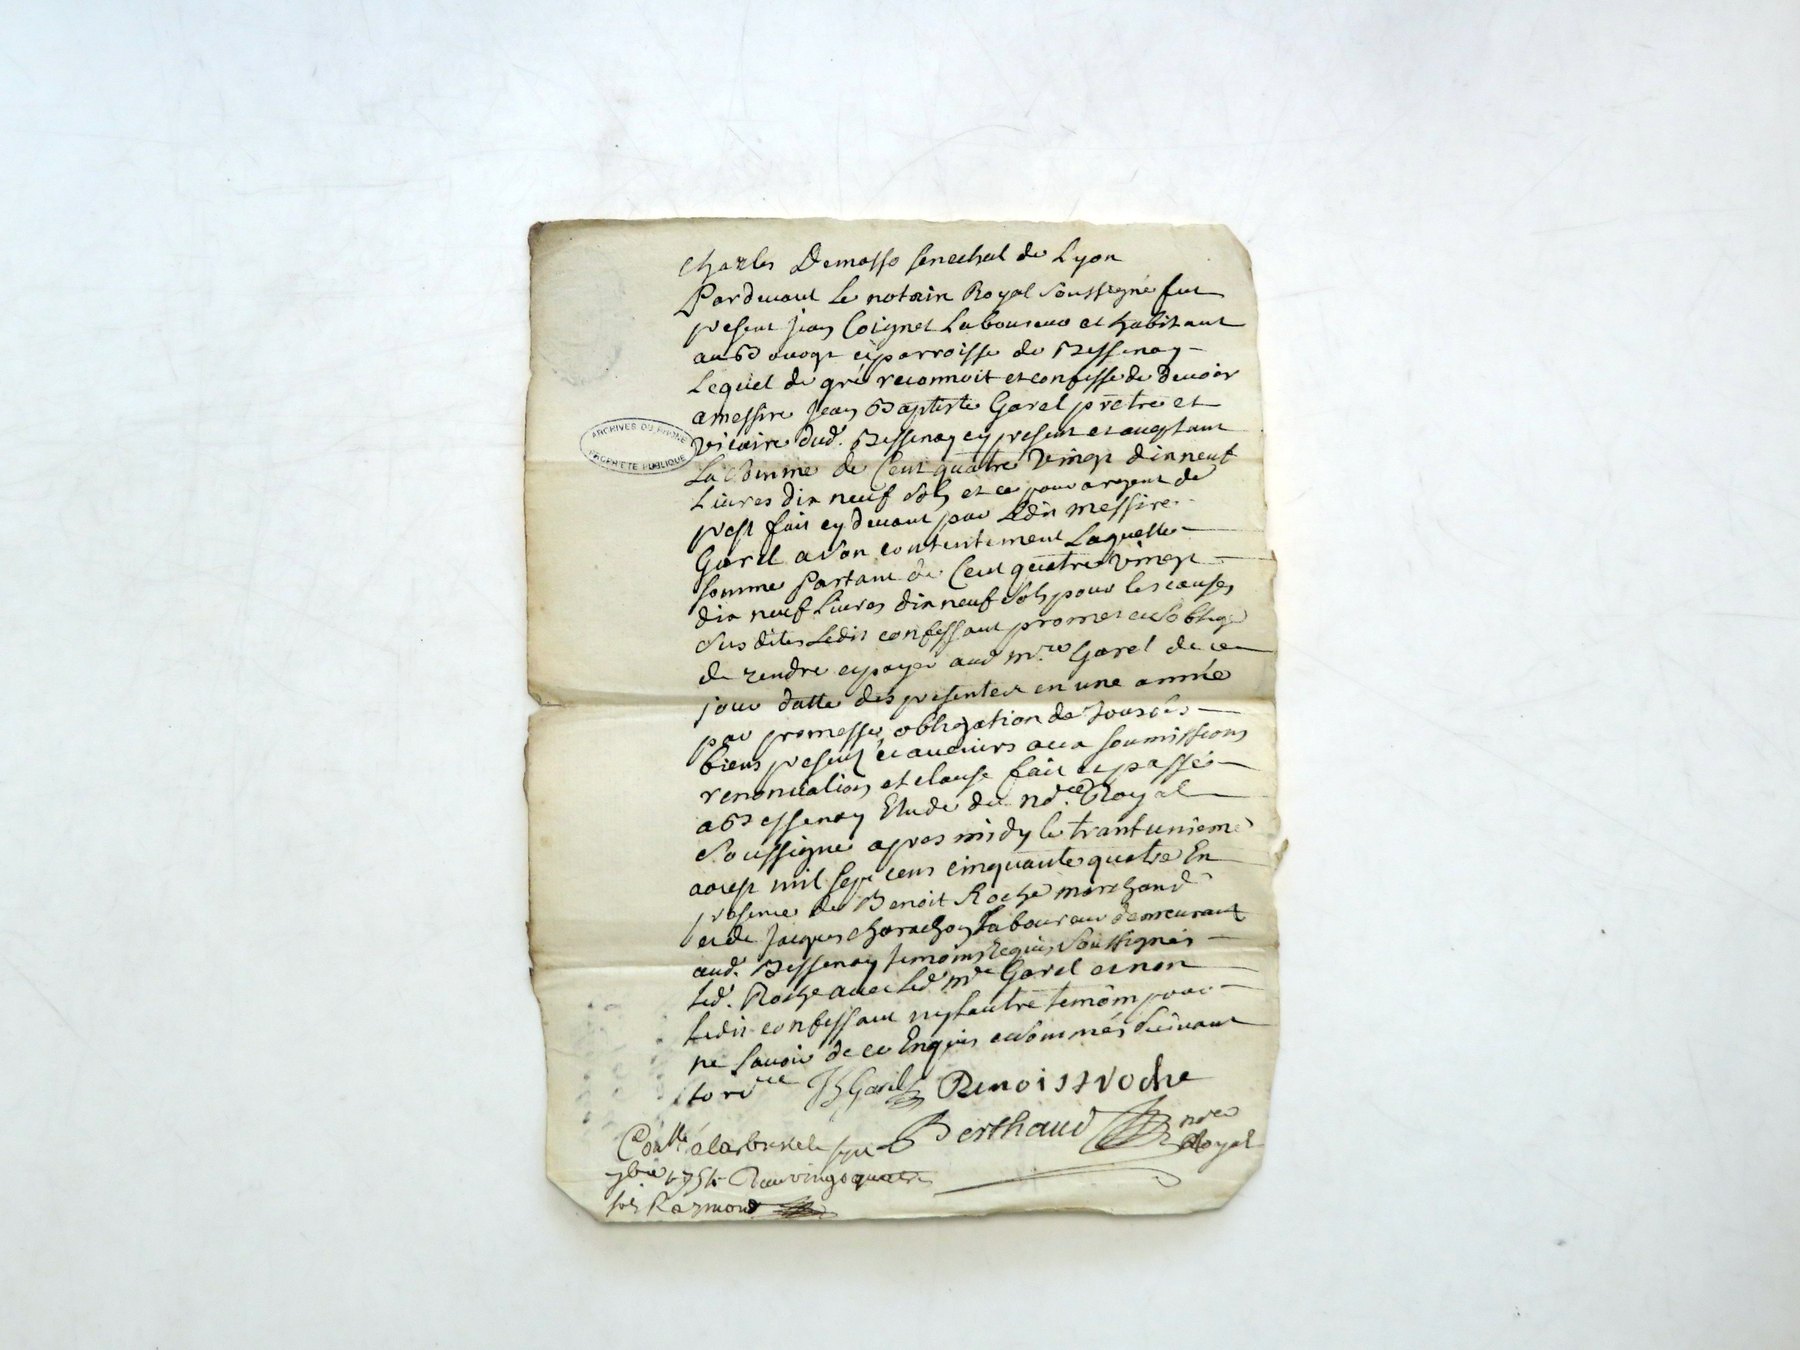 Charles Demasso senechal de Lyon
Pardevant Le notaire Royal Soussigné fut
present Jean Coignet Laboureur et habitant
au bourg et parroisse de Bessenay
Lequel de gré reconnoit et confesse de devoir
a messire Jean Baptiste Garel prêtre et
vicaire dud. Bessenay cy present et aceptant
La Somme de Cent quatre vingt dix neuf
Livres dix neuf Sols et ce pour argent de
prest fait cy devant par Ledit messire
Garel a Son contentement Laquelle
somme Partant de Cent quatre vingt
dix neuf Livres dix neuf Sols pour les causes
Sus dites Ledit confessant promet et S'oblige
de rendre et payer aud mre Garel de ce
jour datte des presentes en une année
par promesse, obligation de tous ses
biens present et avenirs avec soumissions
renonciations et clause fait et passé
a Bessenay Etude du nore Royal
Soussigné apres midy le trant unieme
aoust mil sept cens cinquante quatre En
presence de Benoit Roche marchand
et de Jacques Laboureur demeurant
aud. Bessenay temoins requis Soussignés
Led. Roche avec Led mre Garel et non
Ledit confessant ny Lautre temoin pour
ne Savoir de ce Enquis et Sommés Suivant
lordce JB Garel Benoist Roche
Berthaud nore
Royal
Coallé a larbresle le sept
7bre 1754 Reçu vingt quatre
sols Raymond
ARCHIVES DU RHONE
PROPRIETE PUBLIQUE